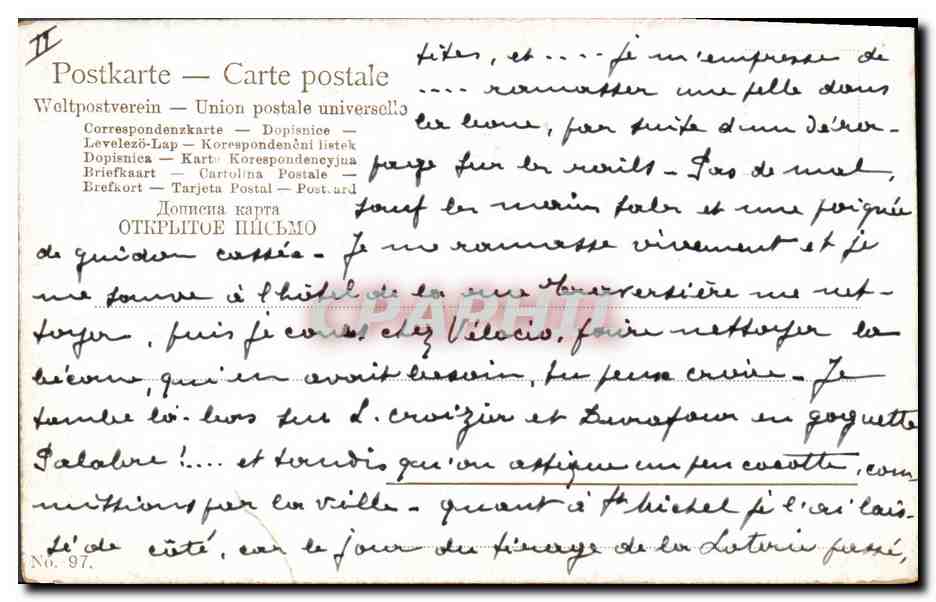 II
Postkarte — Carte postale
Weltpostverein — Union postale universelle
Correspondenzkarte — Dopisnice —
Levelezö-Lap — Korespondenční listek
Dopisnica — Karta Korespondencyjna
Briefkaart — Cartolina Postale —
Brefkort — Tarjeta Postal — Postcard
Дописна карта
ОТКРЫТОЕ ПИСЬМО
tites, et .... je m'empresse de
.... ramasser une pelle dans
la boue, par suite d'un déra-
page sur les rails - Pas de mal,
sauf les mains sales et une poignée
de guidon cassée - Je me ramasse vivement et je
me sauve à l'hôtel de la rue Traversière me net-
toyer, puis je cours chez Vélocio, faire nettoyer la
bécane, qui en avait besoin, tu peux croire - Je
tombe là-bas sur L. Croizier et Durafour en goguette
Palabre !.... et tandis qu'on astique un peu cocotte, com-
missions par la ville - quant à St Michel je l'ai lais-
sé de côté, car le jour du tirage de la Loterie passé,
CPARHPI
No. 97.